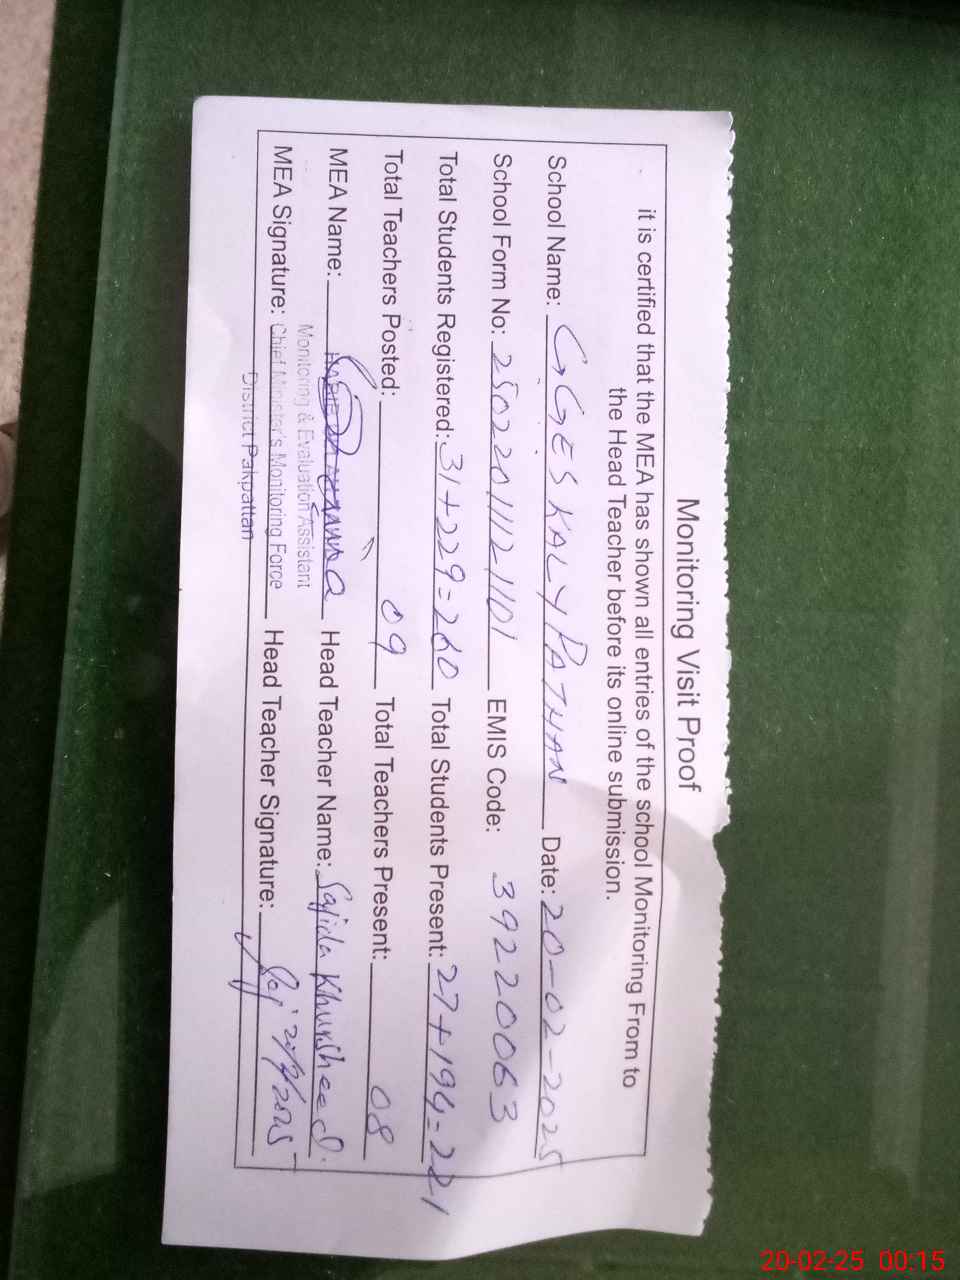 Monitoring Visit Proof
it is certified that the MEA has shown all entries of the school Monitoring From to
the Head Teacher before its online submission.
School Name: GGES KALY PATHAN Date: 20-02-2025
School Form No: 25022011121101 EMIS Code: 39220063
Total Students Registered: 31+229=260 Total Students Present: 27+194=221
Total Teachers Posted: 09 Total Teachers Present: 08
MEA Name: Head Teacher Name: Sajida Khursheed.
Monitoring & Evaluation Assistant
MEA Signature: Chief Minister's Monitoring Force Head Teacher Signature:
District Pakpattan
20-02-25 00:15